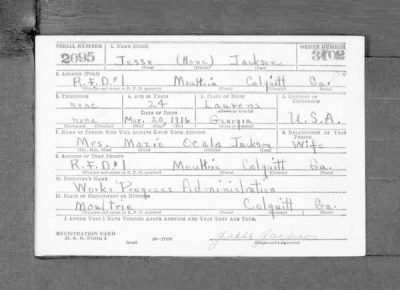 SERIAL NUMBER 1. NAME (Print) ORDER NUMBER
2095 Jesse (None) Jackson 3402
(First) (Middle) (Last)
2. ADDRESS (Print)
R.F.D.#1 Moultrie Colquitt Ga.
(Number and street or R. F. D. number) (Town) (County) (State)
3. TELEPHONE 4. AGE IN YEARS 5. PLACE OF BIRTH 6. COUNTRY OF CITIZENSHIP
none 24 Laurens
DATE OF BIRTH
none Mar. 20, 1916 Georgia U.S.A.
(Exchange) (Number) (Mo.) (Day) (Yr.) (State or country)
7. NAME OF PERSON WHO WILL ALWAYS KNOW YOUR ADDRESS 8. RELATIONSHIP OF THAT PERSON
Mrs. Mazie Ocala Jackson Wife
(Mr., Mrs., Miss) (First) (Middle) (Last)
9. ADDRESS OF THAT PERSON
R.F.D.#1 Moultrie Colquitt Ga.
(Number and street or R. F. D. number) (Town) (County) (State)
10. EMPLOYER'S NAME
Works Progress Administration
11. PLACE OF EMPLOYMENT OR BUSINESS
Moultrie Colquitt Ga.
(Number and street or R. F. D. number) (Town) (County) (State)
I AFFIRM THAT I HAVE VERIFIED ABOVE ANSWERS AND THAT THEY ARE TRUE.
REGISTRATION CARD
D. S. S. Form 1 (over) 16—17105
Jesse Jackson
(Registrant's signature)